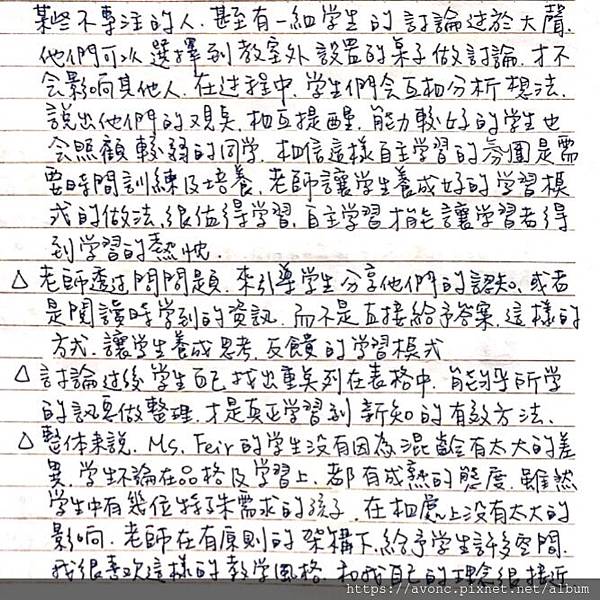 某些不專注的人.甚至有一組學生的討論过於大聲.
他們可以選擇到教室外設置的桌子做討論.才不
会影响其他人.在过程中.学生們会互相分析想法.
說出他們的观点.相互提醒.能力較好的学生也
会照顧較弱的同学.相信這樣自主学習的氛圍是需
要時間訓練及培養.老師讓学生養成好的学習模
式的做法.很值得学習.自主学習才能讓学習者得
到学習的熱忱.
△ 老師透过問問題.來引導学生分享他們的認知.或者
是閱讀時学到的資訊.而不是直接給予答案.這樣的
方式.讓学生養成思考.反饋的学習模式
△ 討論过後学生自己找出重点列在表格中.能夠所学
的訊息做整理.才是真正学習到新知的有效方法.
△ 整体来說.Ms. Feir的学生没有因為混齡会有太大的差
異.学生不論在品格及学習上.都有成熟的態度.雖然
学生中有幾位特殊需求的孩子.在相處上没有太大的
影响.老師在有原則的架構下.給予学生許多空間.
我很喜欢這樣的教学風格.和我自己的理念很接近
https://avonc.pixnet.net/album